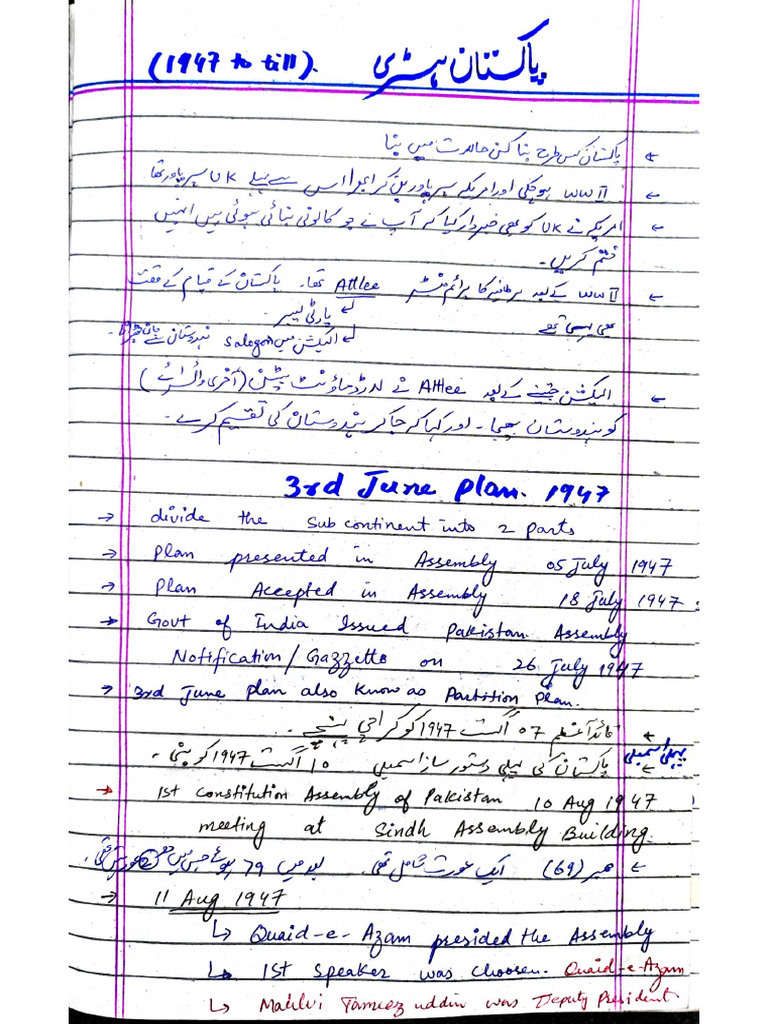 پاکستان ہسٹری (1947 to till).
← پاکستان کس طرح بنا کن حالات میں بنا
← WW II ہو چکی اور امریکہ سپر پاور بن کر ابھرا اس سے پہلے UK سپر پاور تھا
← امریکہ نے UK کو بھی خبردار کیا کہ آپ نے جو کالونی بنائی ہوئی ہیں انہیں
ختم کریں۔
← WW II کے بعد برطانیہ کا پرائم منسٹر Attlee تھا۔ پاکستان کے قیام کے وقت
بھی یہی تھے
پارٹی لیبر
الیکشن میں Salogan ہندوستان سے جان
← الیکشن جیتنے کے بعد Attlee نے لارڈ ماؤنٹ بیٹن (آخری وائسرائے)
کو ہندوستان بھیجا۔ اور کہا کہ جا کر ہندوستان کی تقسیم کرے۔
3rd June plan. 1947
→ divide the Sub continent into 2 parts
→ Plan presented in Assembly 05 July 1947
→ Plan Accepted in Assembly 18 July 1947
→ Govt of India Issued Pakistan Assembly
Notification/Gazzette on 26 July 1947
→ 3rd June plan also know as Partition Plan.
← قائداعظم 07 اگست 1947 کو کراچی پہنچے۔
پہلی اسمبلی
← پاکستان کی پہلی دستور ساز اسمبلی 10 اگست 1947 کو بنی۔
→ 1st Constitution Assembly of Pakistan 10 Aug 1947
meeting at Sindh Assembly Building.
← ممبر (69) ایک عورت شامل تھی۔ بعد میں 79 ہوئے جس میں 2 عورتیں تھی۔
→ 11 Aug 1947
↳ Quaid-e-Azam presided the Assembly
↳ 1st Speaker was choosen. Quaid-e-Azam
↳ Mahlvi Tameez uddin was Deputy President